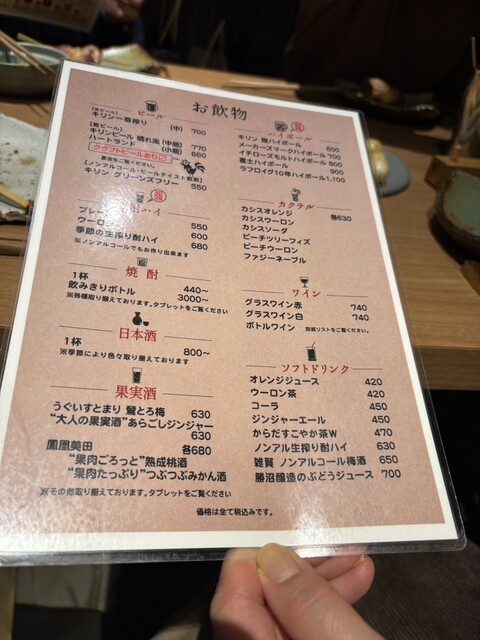 お飲物
ビール
(生ビール)
キリン一番搾り (中) 700
(瓶ビール)
キリンビール 晴れ風 (中瓶) 770
ハートランド (小瓶) 660
クラフトビールあり〼
裏面をご覧ください
(ノンアルコール・ビールテイスト飲料)
キリン グリーンズフリー 550
酎ハイ
プレーン 550
ウーロン 600
季節の生搾り酎ハイ 680
※ノンアルコールでもお作り出来ます
焼酎
1杯 440〜
飲みきりボトル 3000〜
※各種取り揃えております。タブレットをご覧ください
日本酒
1杯 800〜
※季節により色々取り揃えております
果実酒
うぐいすとまり 鶯とろ梅 630
“大人の果実酒”あらごしジンジャー
630
鳳凰美田 各680
“果肉ごろっと”熟成桃酒
“果肉たっぷり”つぶつぶみかん酒
※その他取り揃えております。タブレットをご覧ください
ハイボール
キリン 陸ハイボール 600
メーカーズマークハイボール 700
イチローズモルトハイボール 800
富士ハイボール 900
ラフロイグ10年ハイボール 1,100
カクテル
カシスオレンジ 各630
カシスウーロン
カシスソーダ
ピーチツリーフィズ
ピーチウーロン
ファジーネーブル
ワイン
グラスワイン赤 740
グラスワイン白 740
ボトルワイン 別紙リストをご覧ください。
ソフトドリンク
オレンジジュース 420
ウーロン茶 420
コーラ 450
ジンジャーエール 450
からだすこやか茶W 450
ノンアル生搾り酎ハイ 630
雑賀 ノンアルコール梅酒 650
勝沼醸造のぶどうジュース 700
価格は全て税込みです。